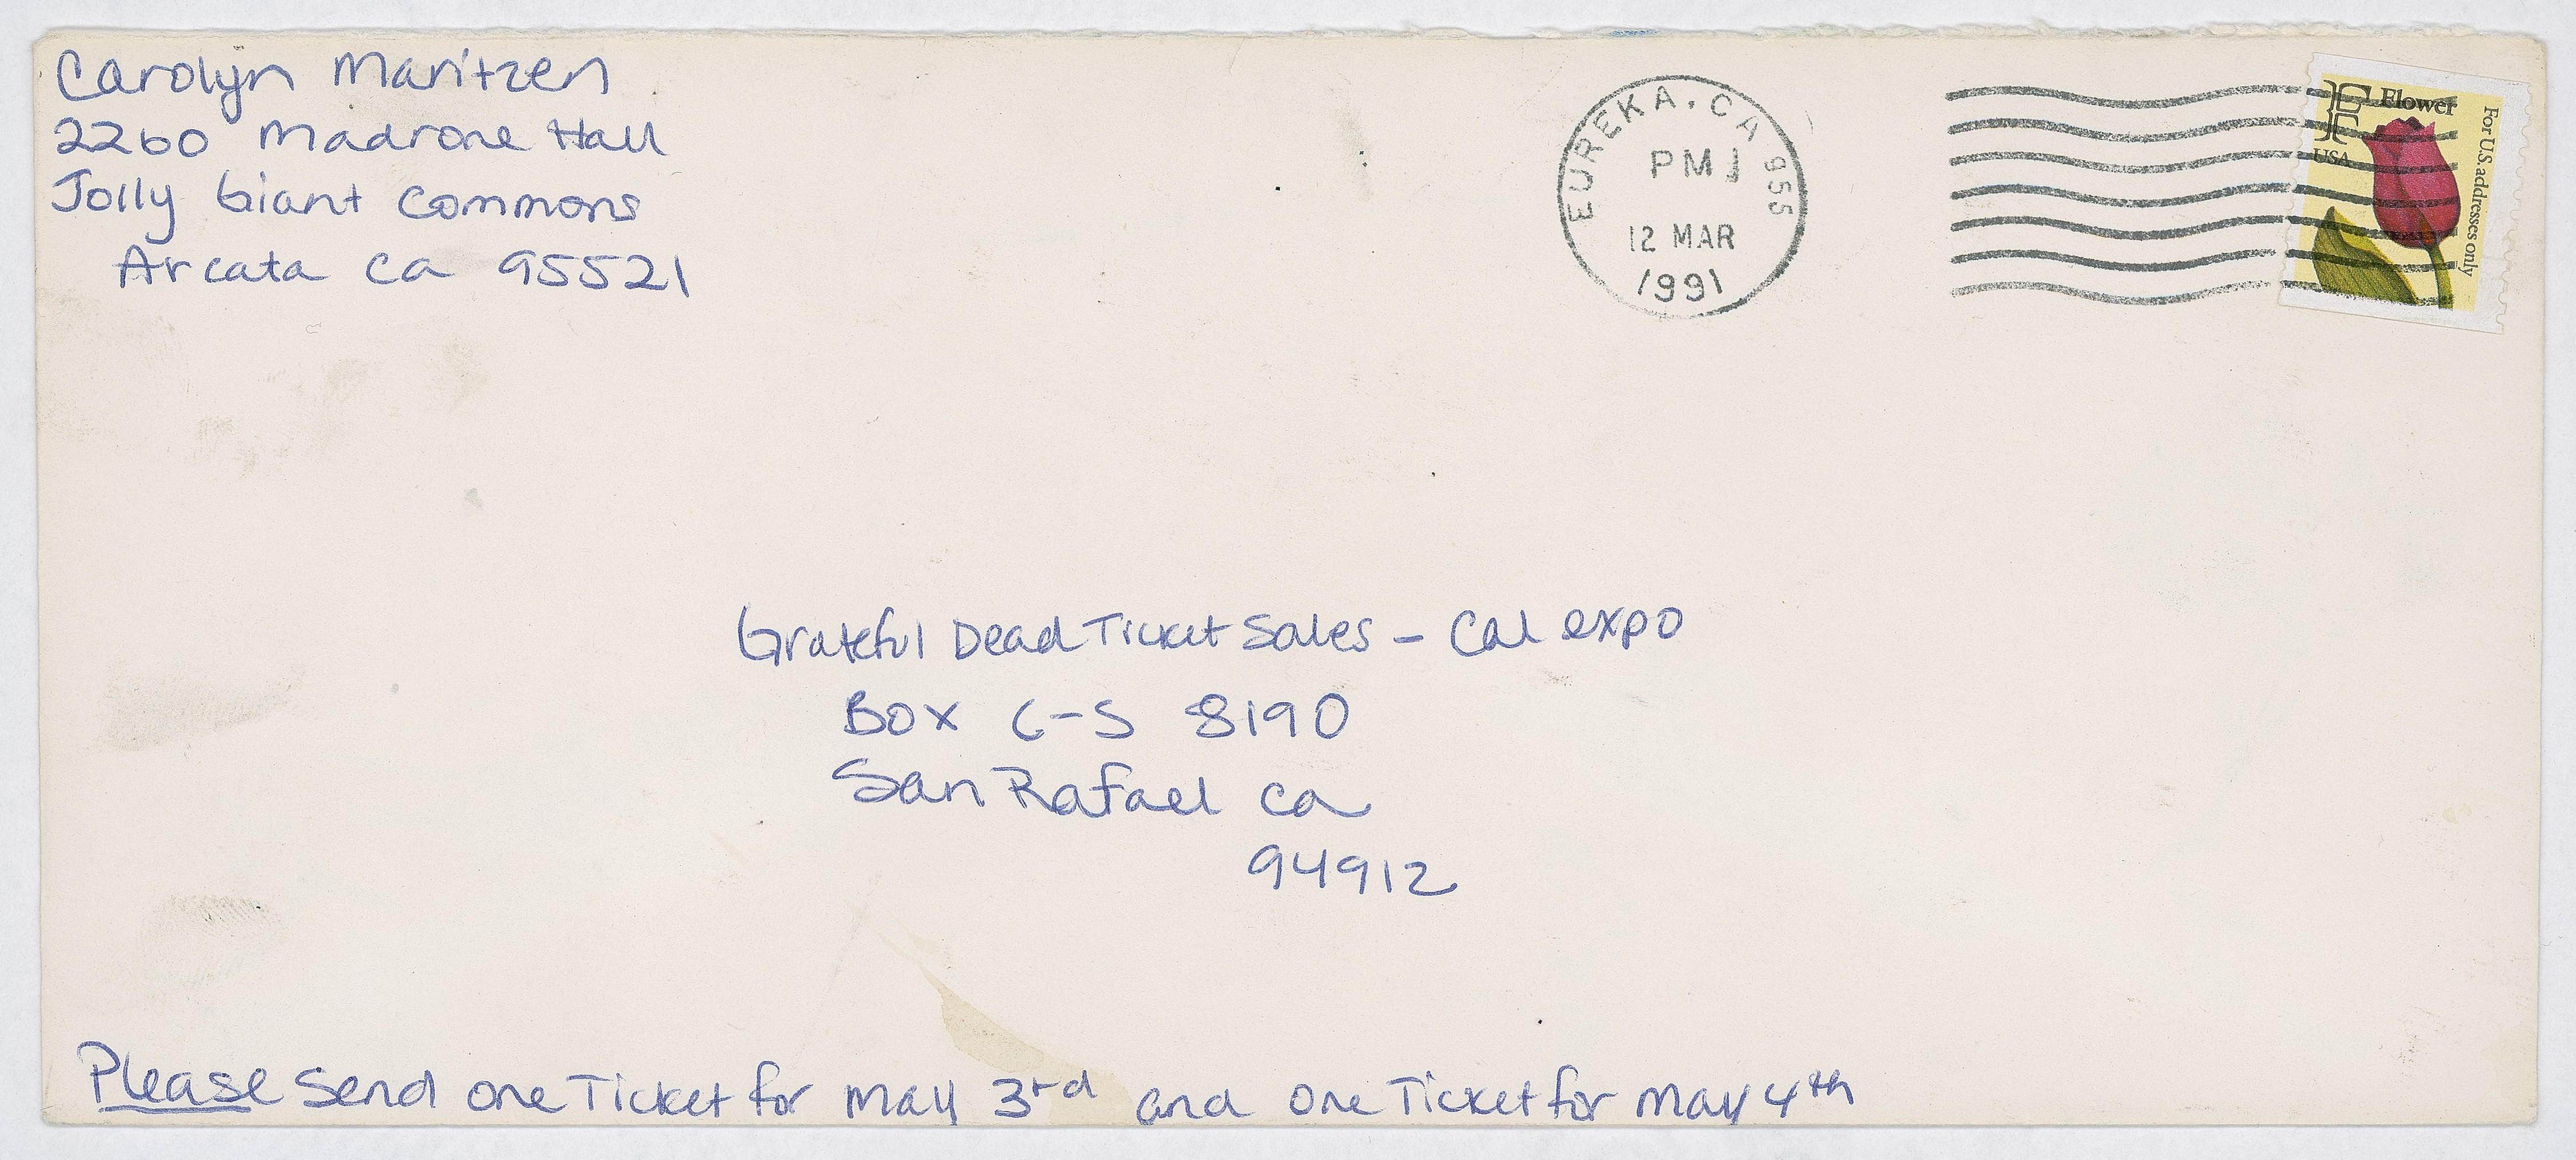 Carolyn Maritzen
2260 Madrone Hall
Jolly Giant Commons
Arcata Ca 95521
EUREKA, CA 955
PM
12 MAR
1991
F Flower
USA
For U.S. addresses only
Grateful Dead Ticket Sales - Cal expo
Box C-S 8190
San Rafael Ca
94912
Please Send one Ticket for May 3rd and one Ticket for May 4th